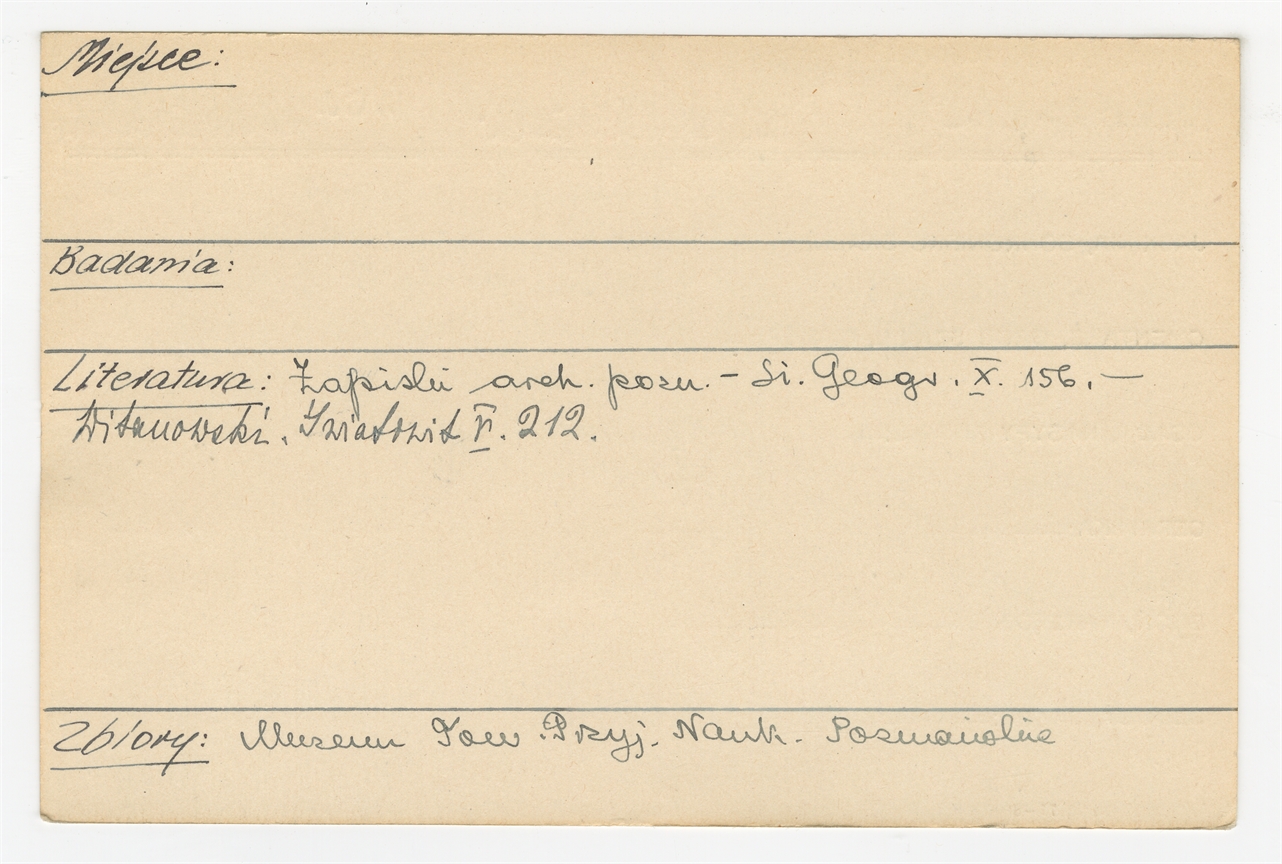 Miejsce:
Badania:
Literatura: Zapiski arch. pozn. – Sł. Geogr. X. 156. –
Witanowski. Światowit VI. 212.
Zbiory: Muzeum Tow. Przyj. Nauk. Poznańskie